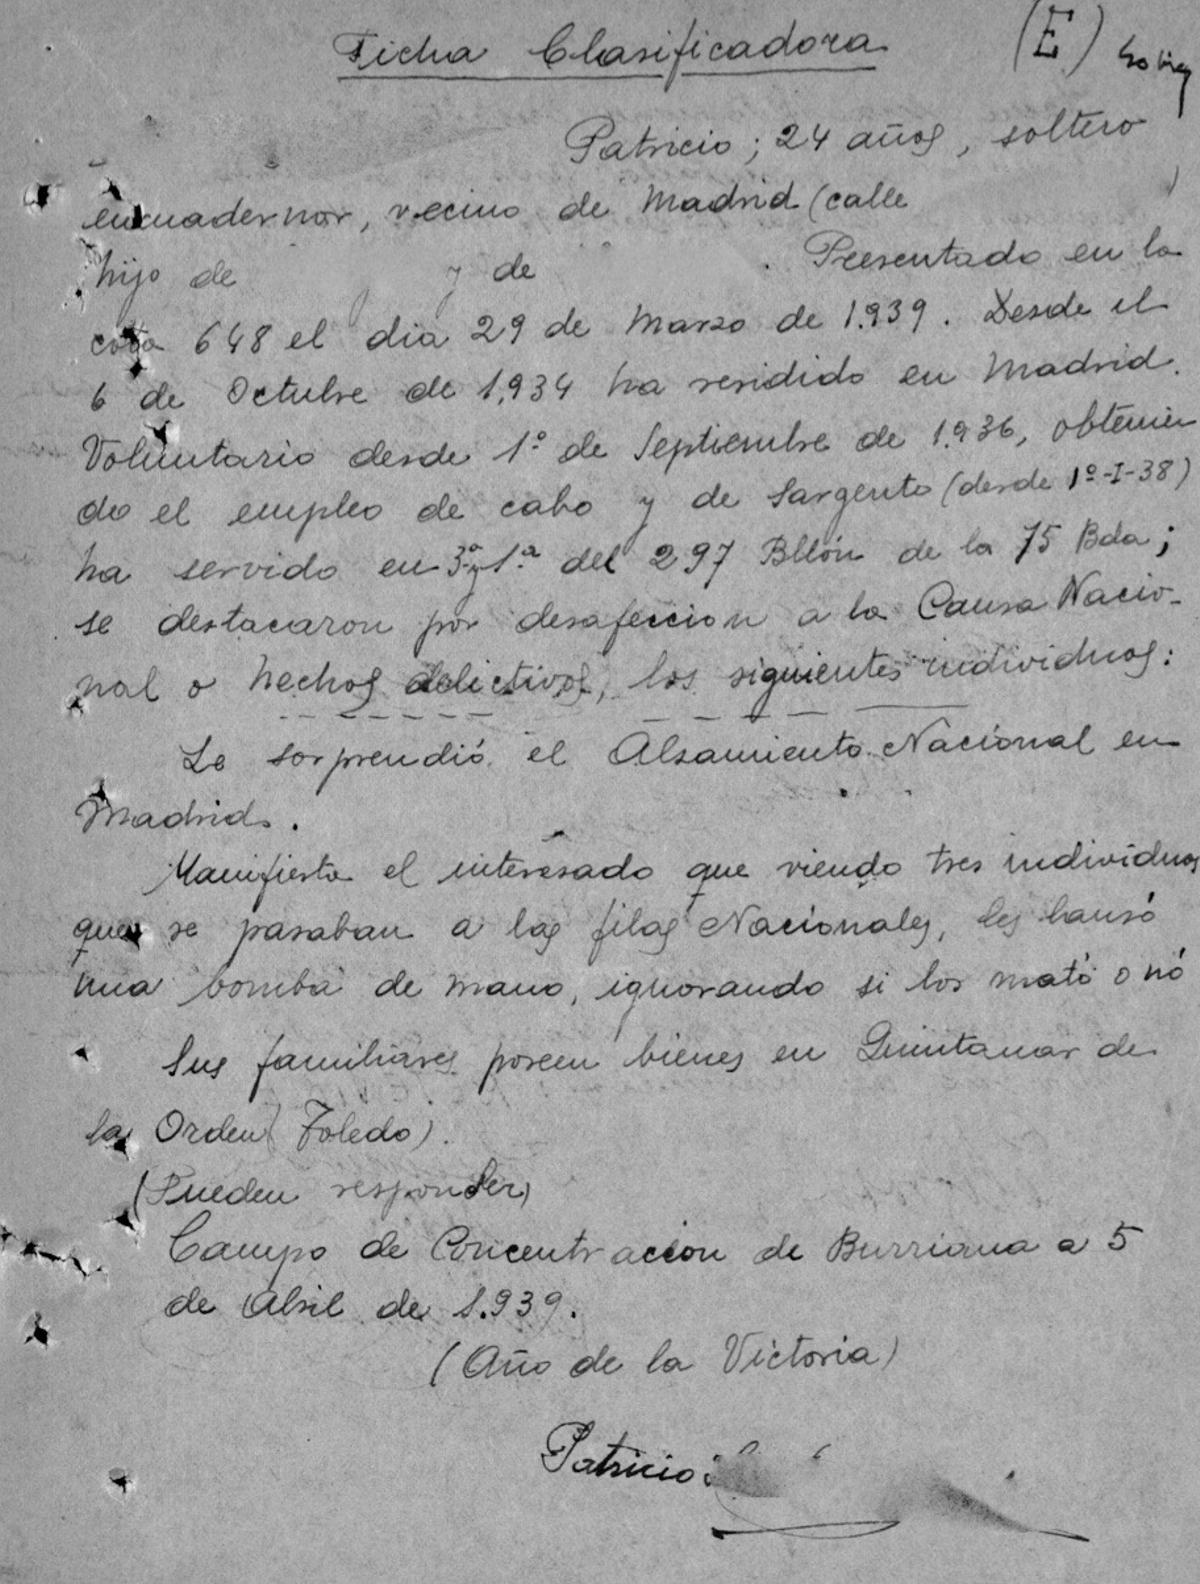 Ficha Clasificadora (E)
Patricio ; 24 años, soltero
encuadernor, vecino de Madrid (calle )
hijo de y de . Presentado en la
cota 648 el dia 29 de Marzo de 1.939. Desde el
6 de Octubre de 1.934 ha residido en Madrid.
Voluntario desde 1º de Septiembre de 1.936, obtenien
do el empleo de cabo y de Sargento (desde 1º-I-38)
ha servido en 3ª y 1ª del 297 Bllón de la 75 Bda;
se destacaron por desafeccion a la Causa Nacio-
nal o hechos delictivos, los siguientes individuos:
Le sorprendió el Alsamiento Nacional en
Madrid.
Manifiesta el interesado que viendo tres individuos
que se pasaban a las filas Nacionales, les lansó
una bomba de mano, ignorando si los mató o nó
Sus familiares poseen bienes en Quintanar de
la Orden (Toledo).
(Pueden responder)
Campo de Concentracion de Burriana a 5
de Abril de 1.939.
(Año de la Victoria)
Patricio